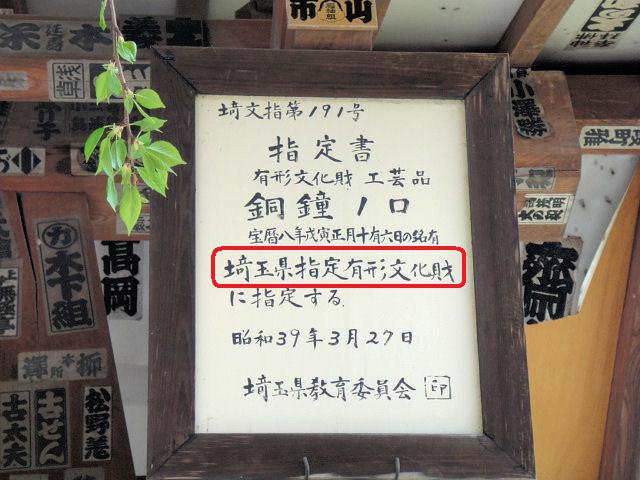 埼文指第191号
指定書
有形文化財 工芸品
銅鐘1口
宝暦八年戊寅正月十有六日の銘有
埼玉県指定有形文化財
に指定する.
昭和39年3月27日
埼玉県教育委員会 印
市山
浅草
小澤
高岡
木下組
柳
本所
松野差
士せん
古太夫